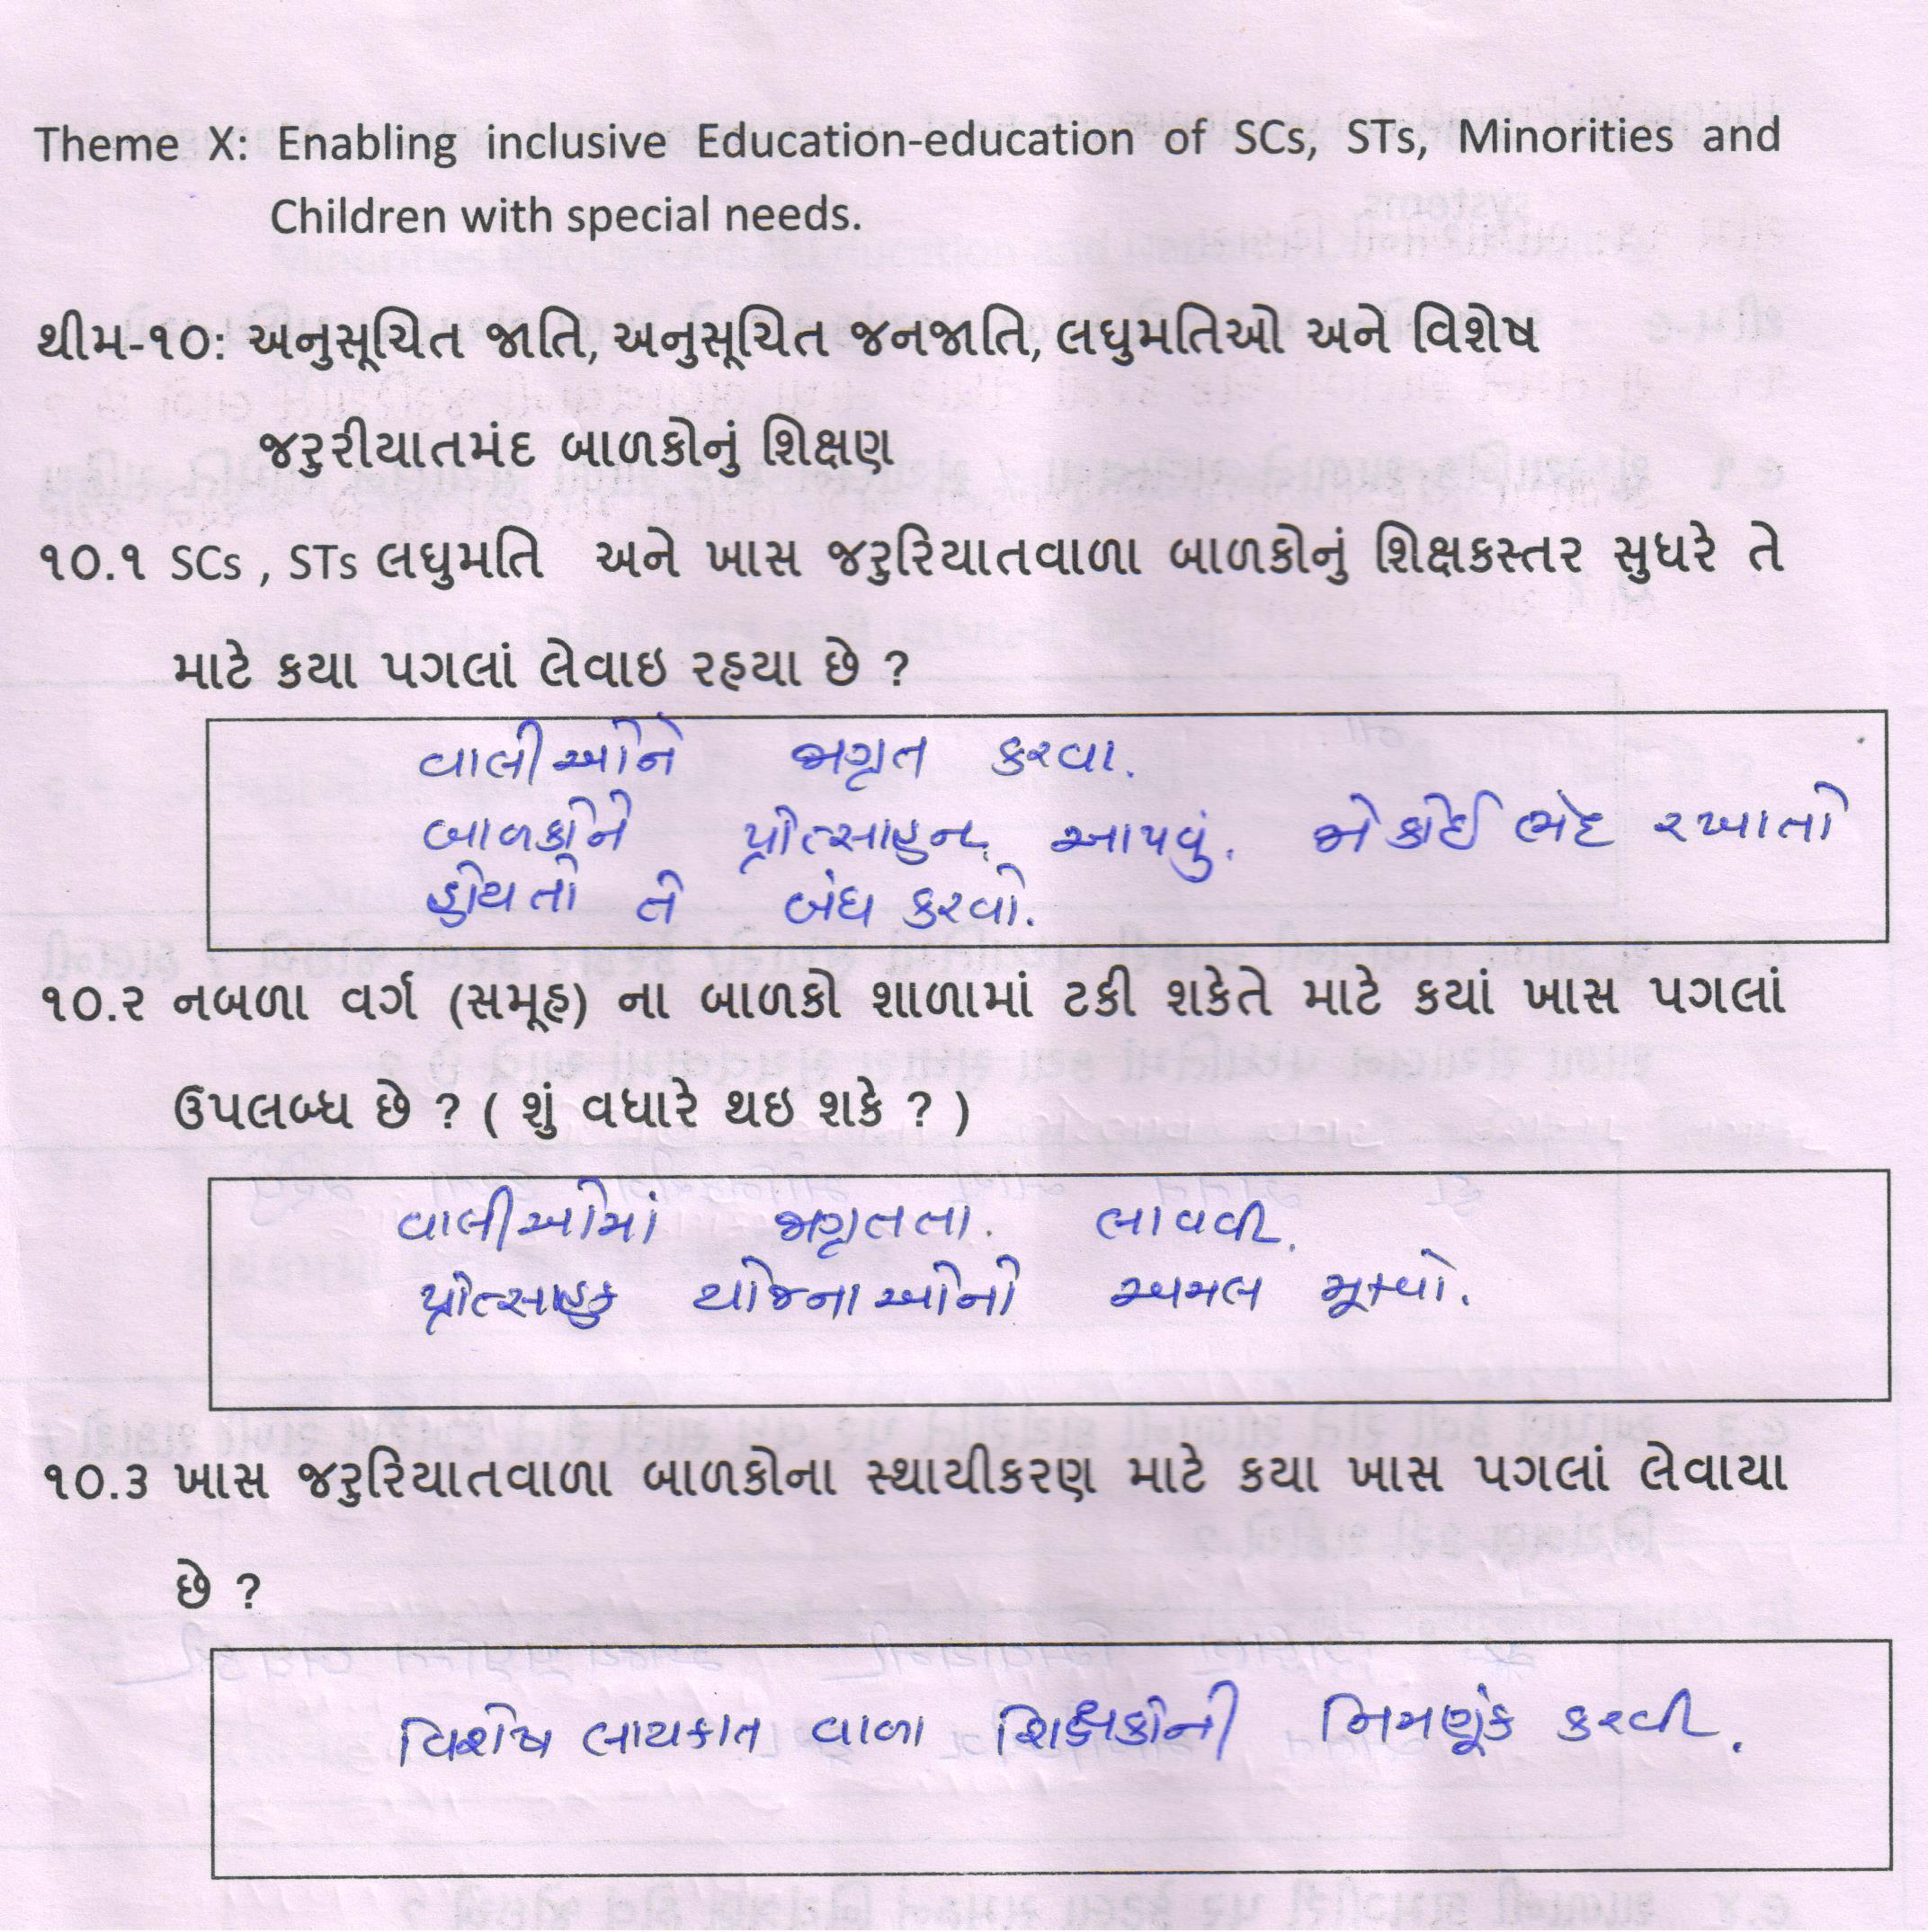 Theme X: Enabling inclusive Education-education of SCs, STs, Minorities and
Children with special needs.
થીમ-૧૦: અનુસૂચિત જાતિ, અનુસૂચિત જનજાતિ, લઘુમતિઓ અને વિશેષ
જરુરીયાતમંદ બાળકોનું શિક્ષણ
૧૦.૧ SCs , STs લઘુમતિ અને ખાસ જરુરિયાતવાળા બાળકોનું શિક્ષકસ્તર સુધરે તે
માટે કયા પગલાં લેવાઇ રહયા છે ?
વાલીઓને જાગૃત કરવા.
બાળકોને પ્રોત્સાહન આપવું. જો કોઈ ભેદ રખાતો
હોય તો તે બંધ કરવો.
૧૦.૨ નબળા વર્ગ (સમૂહ) ના બાળકો શાળામાં ટકી શકેતે માટે કયાં ખાસ પગલાં
ઉપલબ્ધ છે ? ( શું વધારે થઇ શકે ? )
વાલીઓમાં જાગૃતતા. લાવવી.
પ્રોત્સાહક યોજનાઓનો અમલ મૂકવો.
૧૦.૩ ખાસ જરુરિયાતવાળા બાળકોના સ્થાયીકરણ માટે કયા ખાસ પગલાં લેવાયા
છે ?
વિશેષ લાયકાત વાળા શિક્ષકોની નિમણૂંક કરવી.